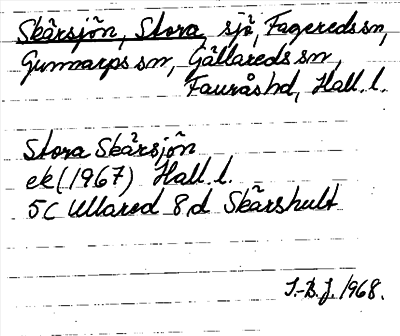 Skärsjön, Stora sjö, Fagereds sn,
Gunnarps sn, Gällareds sn,
Fauråshd, Hall. l.
Stora Skärsjön
ek (1967) Hall. l.
5C Ullared 8d Skärshult
I.-B.J. 1968.